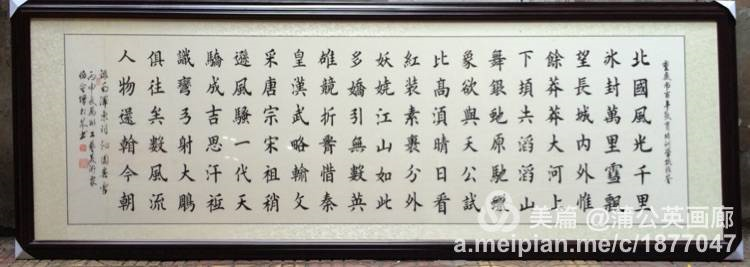 北國風光千里
冰封萬里雪飄
望長城內外惟
餘莽莽大河上
下頓失滔滔山
舞銀蛇原馳蠟
象欲與天公試
比高須晴日看
紅裝素裹分外
妖嬈江山如此
多嬌引無數英
雄競折腰惜秦
皇漢武略輸文
采唐宗宋祖稍
遜風騷一代天
驕成吉思汗祗
識彎弓射大鵰
俱往矣數風流
人物還看今朝
毛澤東詞沁園春雪
美篇 @蒲公英画廊
a.meipian.me/c/1877047